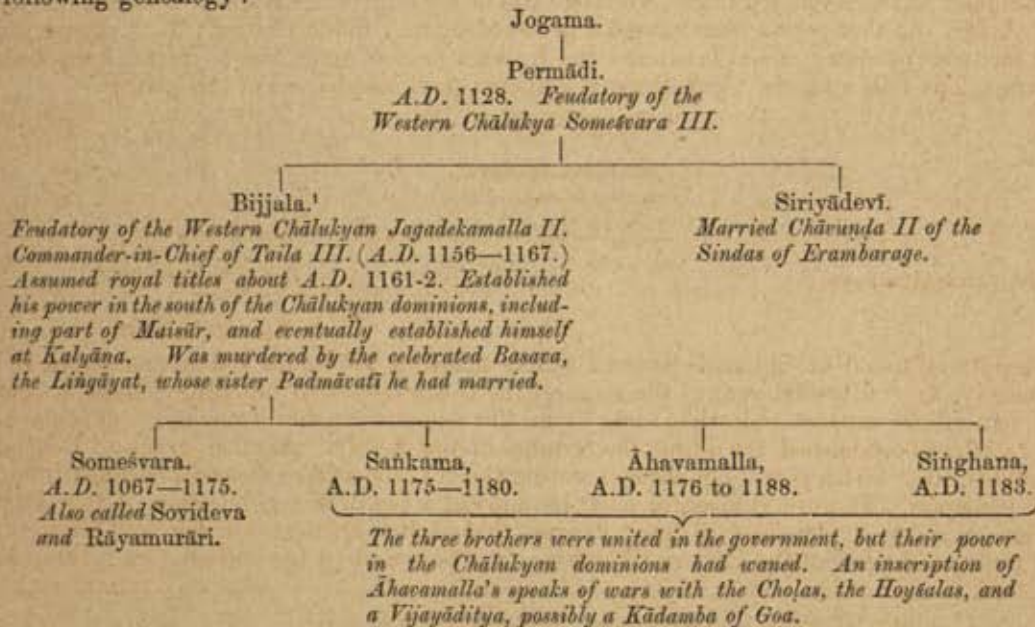 following genealogy :—
Jogama.
Permādi.
A.D. 1128. Feudatory of the
Western Chālukya Someśvara III.
Bijjala.¹
Feudatory of the Western Chālukyan Jagadekamalla II.
Commander-in-Chief of Taila III. (A.D. 1156—1167.)
Assumed royal titles about A.D. 1161-2. Established
his power in the south of the Chālukyan dominions, includ-
ing part of Maisūr, and eventually established himself
at Kalyāna. Was murdered by the celebrated Basava,
the Liṅgāyat, whose sister Padmāvatī he had married.
Siriyādevī.
Married Chāvuṇḍa II of the
Sindas of Erambarage.
Someśvara.
A.D. 1067—1175.
Also called Sovideva
and Rāyamurāri.
Saṅkama,
A.D. 1175—1180.
Āhavamalla,
A.D. 1176 to 1188.
Siṅghana,
A.D. 1183.
The three brothers were united in the government, but their power
in the Chālukyan dominions had waned. An inscription of
Āhavamalla's speaks of wars with the Choḷas, the Hoyśalas, and
a Vijayāditya, possibly a Kādamba of Goa.